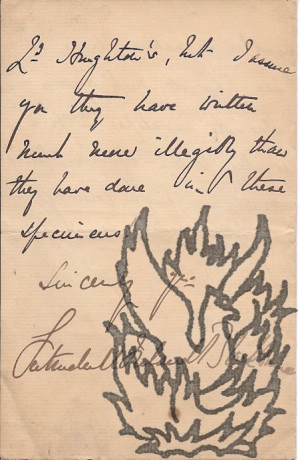 Ld Houghton's, but I assure
you they have written
much more illegibly than
they have done in these
specimens
Sincerely yrs